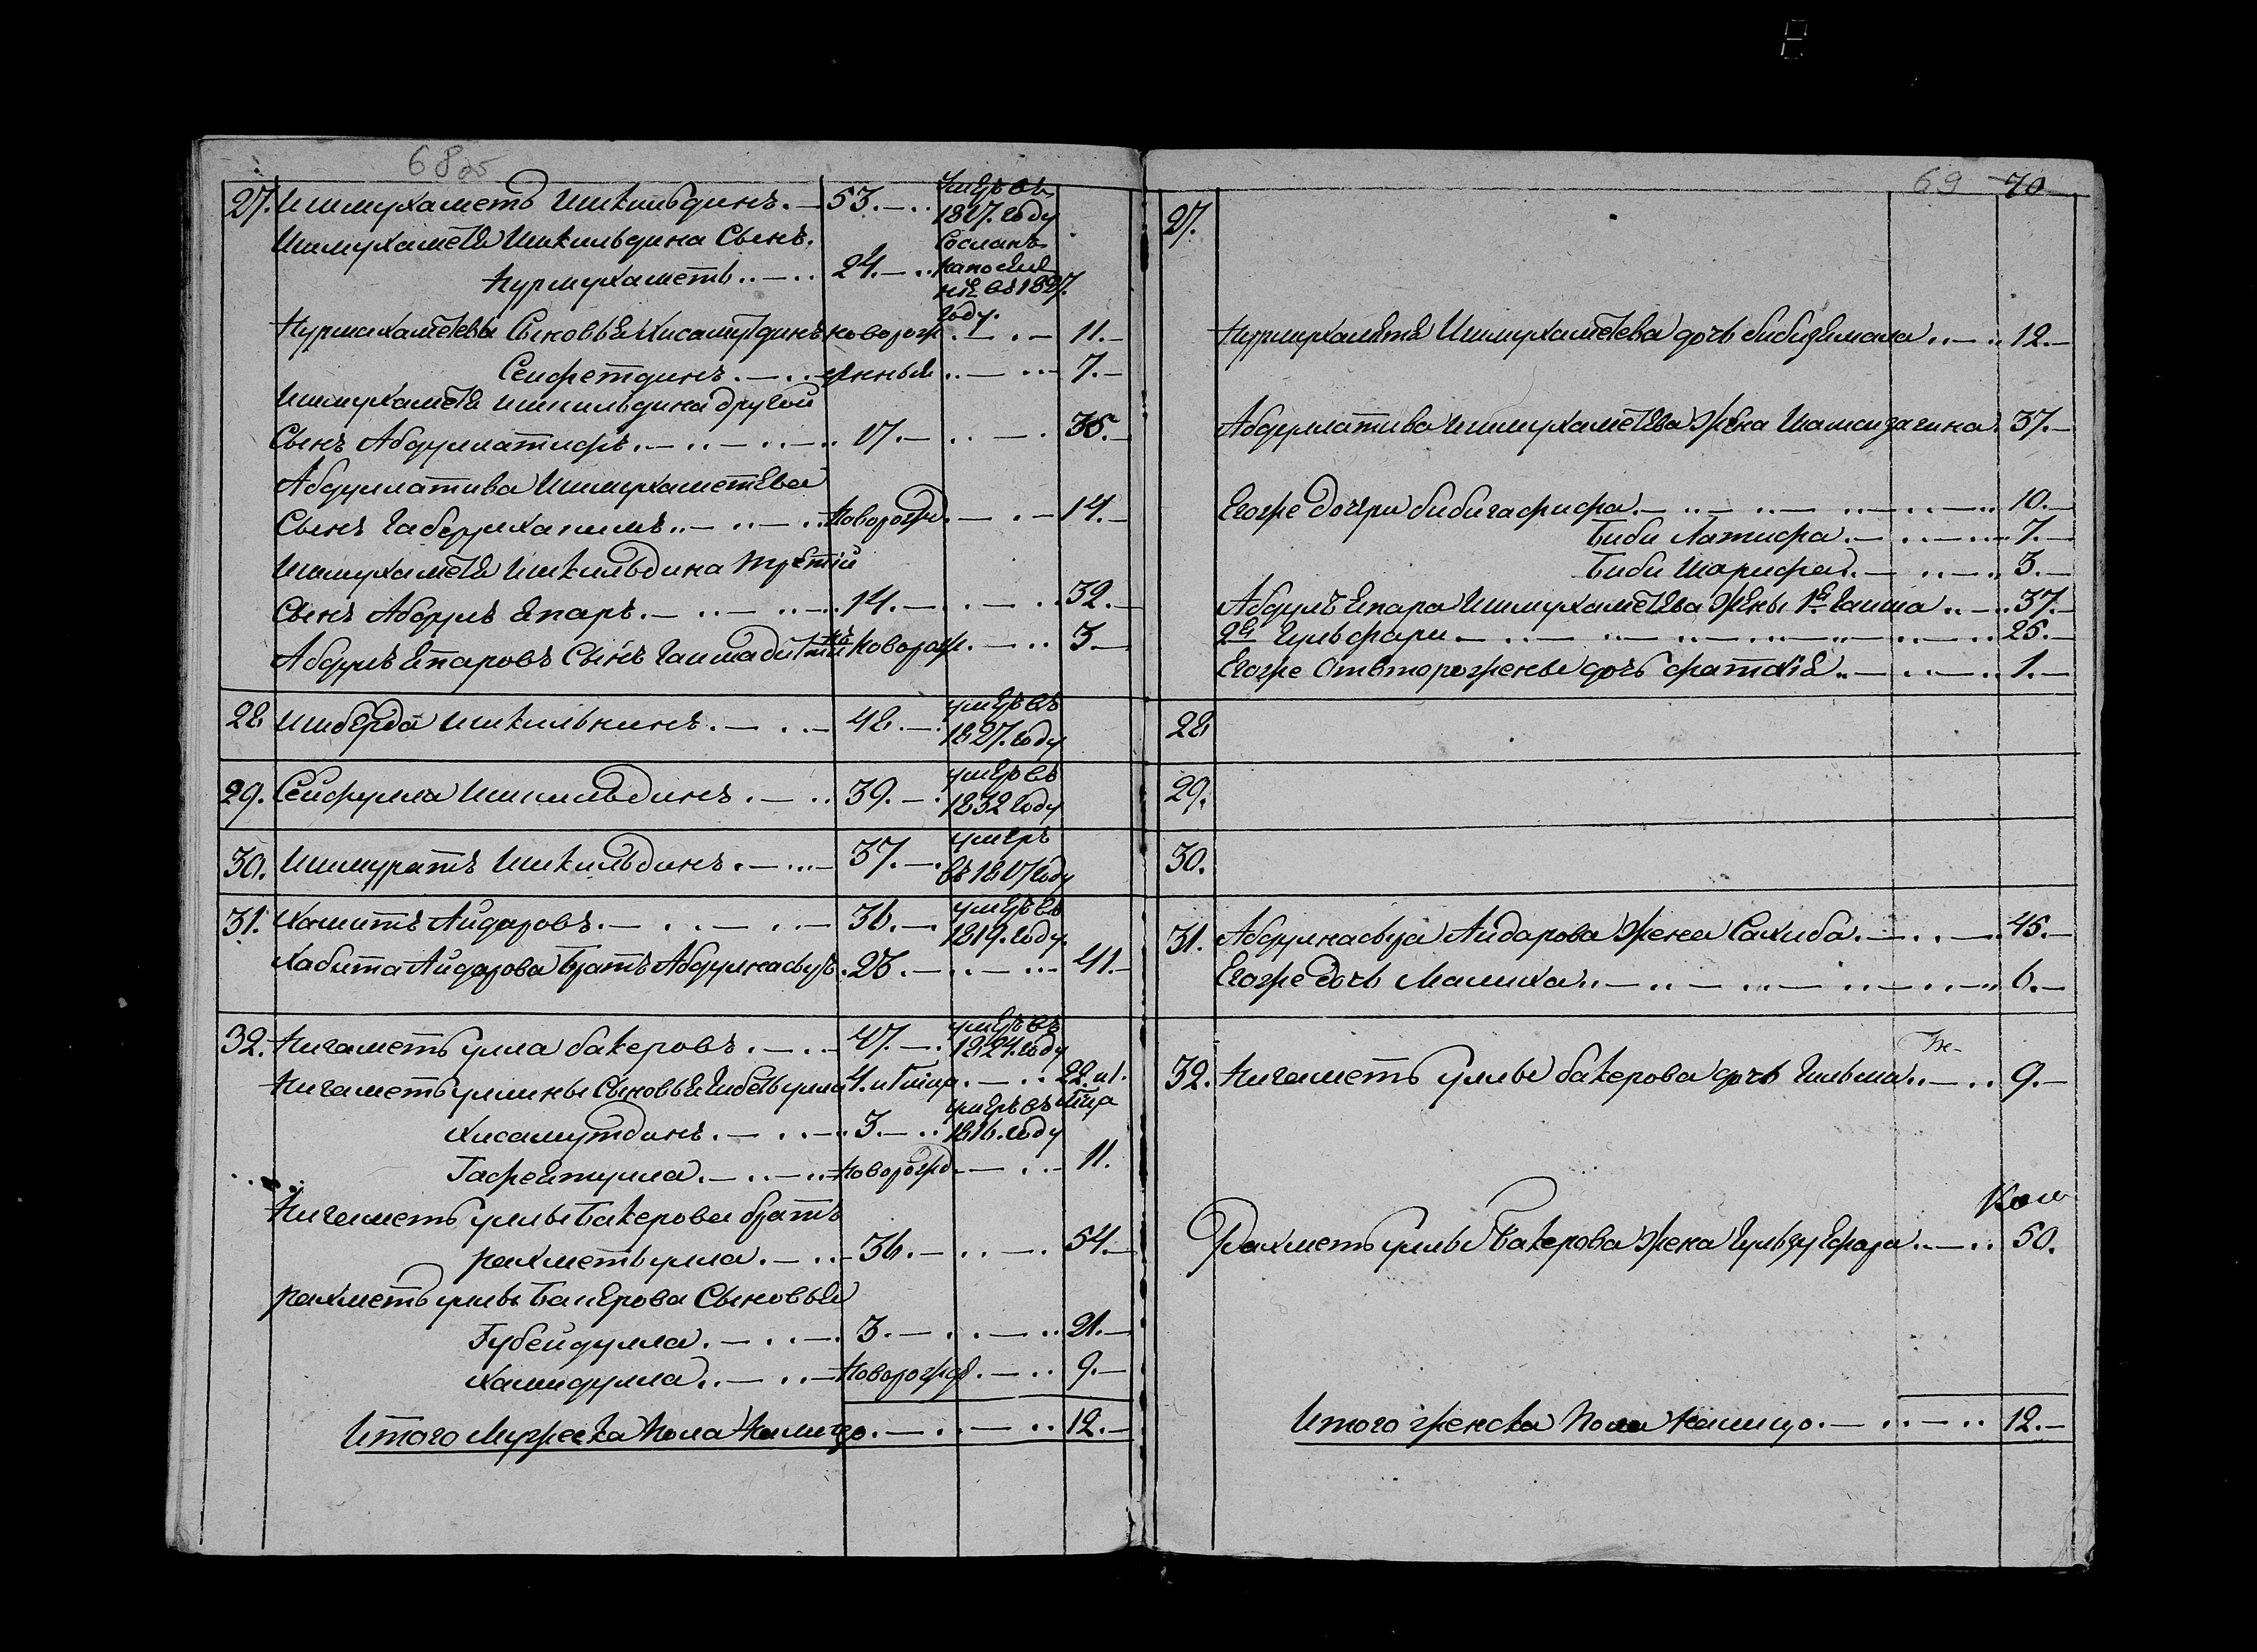 68 об
27. Ишмухаметь Ишкильдинъ. 53. Умеръ въ 1827. году
Ишмухаметя Ишкильдина Сынъ.
Нурмухаметь 24. Сосланъ на поселение въ 1827. году.
Нурмахаметевы Сыновья Хисамутдинъ новорож 11.
Сеифетдинъ денныя 7.
Ишмухаметя Ишкильдина другой
Сынъ Абдуллатифъ. 17. 35.
Абдуллатива Ишмухаметева
Сынъ Габдулхалимъ Новорожд. 14.
Ишмухаметя Ишкильдина третiй
Сынъ Абдулъ Ѣпаръ. 14. 32.
Абдулъ Ѣпаровъ Сынъ Новорож. 3
28 Ишберда Ишкильнинъ. 48. умеръ въ 1827. году
29. Сеифулла Ишкильдинъ. 39. умеръ въ 1832 году
30. Ишмуратъ Ишкильдинъ. 37. умеръ въ 1817 году
31. Хамитъ Айдаровъ. 36. умеръ въ 1819. году.
Хабита Айдарова братъ Абдулнасыръ. 23. 41.
32. Нигаметь улла бакеровъ. 47. умеръ въ 1824. году
Нигаметь уллины Сыновья 4. 22.
Хисамутдинъ. 3. умеръ въ 1816. году
Гафейтулла. Новорожд. 11.
Нигаметь уллы Бакерова братъ
рахметь улла. 36. 54.
рахметь уллы Бакерова Сыновья
Губейдулла. 3. 21.
Хамидулла. Новорожд. 9.
Итого Мужеска Пола Налицо. 12.
69 70
27.
Нурмухаметя Ишмухаметева дочь бибизямала 12.
Абдуллатива Ишмухаметева Жена 37.
Егоже дочери бибигафифа. 10.
Биби Латифа. 7.
Биби Шарифа. 3.
Абдулъ Ѣпара Ишмухаметева Жены 1я Гаиша 37.
2я Гульфари 25.
Егоже отъ второжены дочь 1.
28
29.
30.
31. Абдулнасыра Айдарова Жена Сахиба. 45.
Егоже дочь Малиха 6.
32. Нигаметь уллы бакерова дочь Гильма 9.
Рахметь уллы Бакерова Жена 50.
Итого женска Пола Налицо. 12.